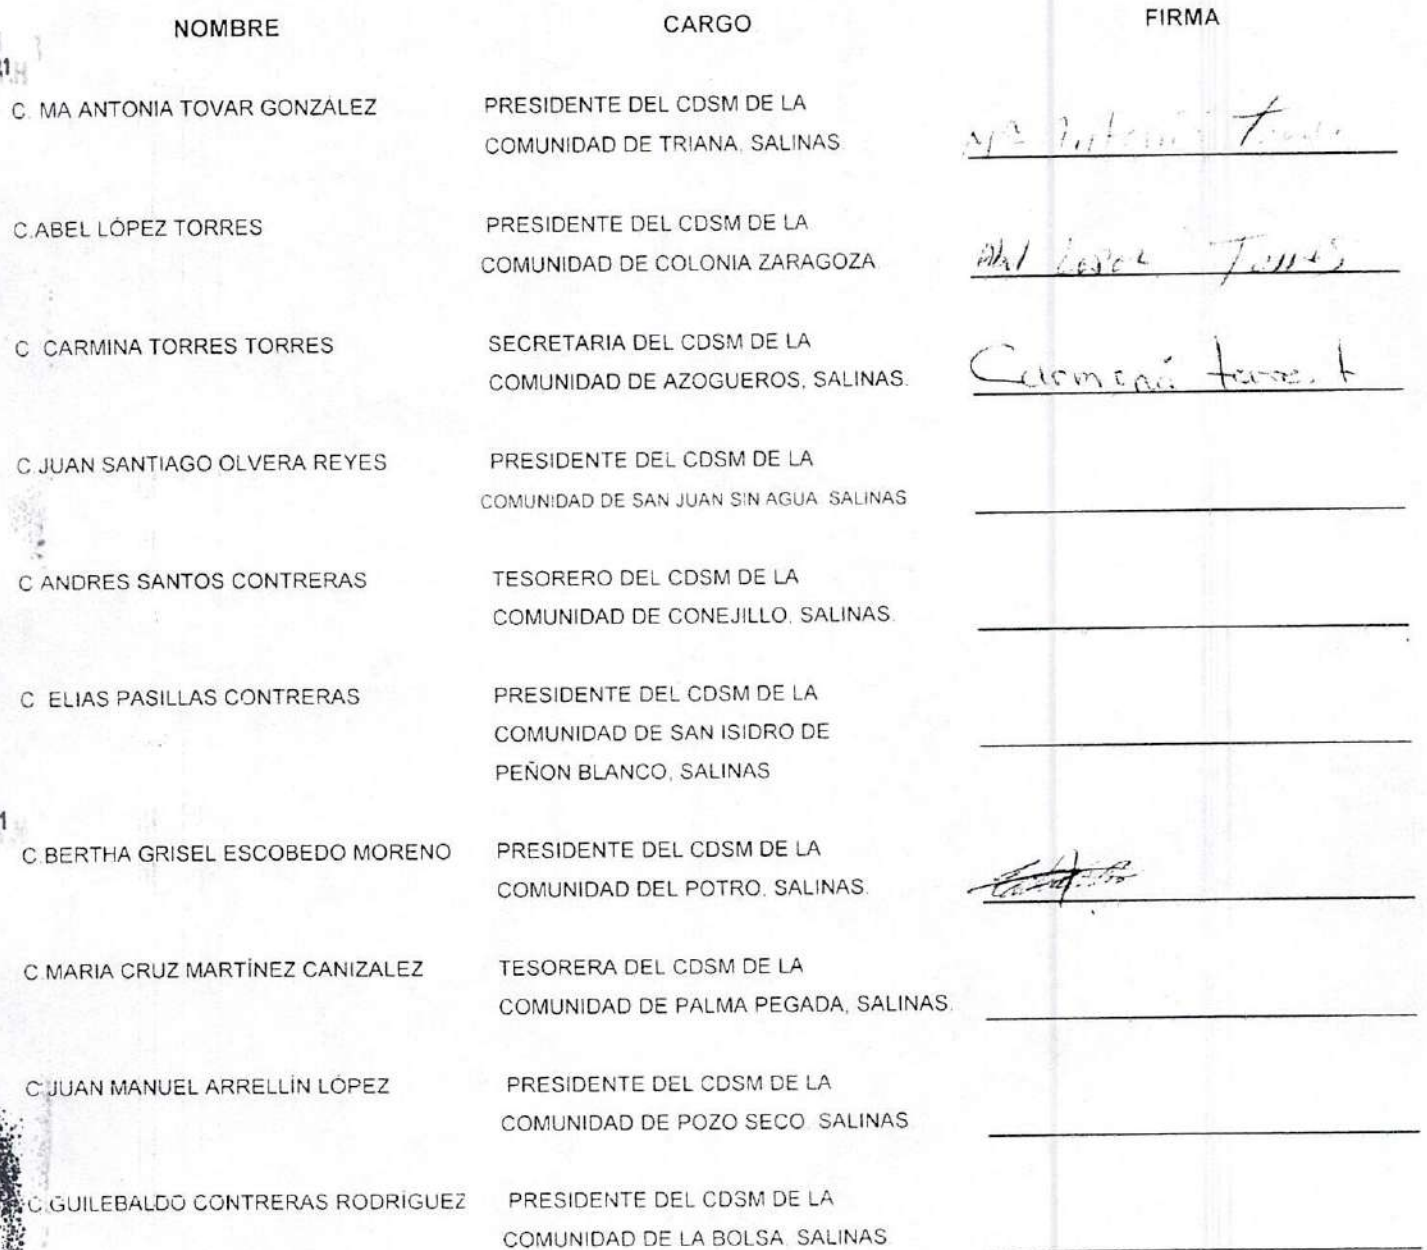 NOMBRE CARGO FIRMA
C. MA ANTONIA TOVAR GONZÁLEZ PRESIDENTE DEL CDSM DE LA
COMUNIDAD DE TRIANA, SALINAS. Mª Antonia Tovar
C.ABEL LÓPEZ TORRES PRESIDENTE DEL CDSM DE LA
COMUNIDAD DE COLONIA ZARAGOZA Abel Lopez Torres
C. CARMINA TORRES TORRES SECRETARIA DEL CDSM DE LA
COMUNIDAD DE AZOGUEROS, SALINAS. Carmina torres t
C.JUAN SANTIAGO OLVERA REYES PRESIDENTE DEL CDSM DE LA
COMUNIDAD DE SAN JUAN SIN AGUA SALINAS
C ANDRES SANTOS CONTRERAS TESORERO DEL CDSM DE LA
COMUNIDAD DE CONEJILLO, SALINAS.
C ELIAS PASILLAS CONTRERAS PRESIDENTE DEL CDSM DE LA
COMUNIDAD DE SAN ISIDRO DE
PEÑON BLANCO, SALINAS
C.BERTHA GRISEL ESCOBEDO MORENO PRESIDENTE DEL CDSM DE LA
COMUNIDAD DEL POTRO, SALINAS.
C.MARIA CRUZ MARTÍNEZ CANIZALEZ TESORERA DEL CDSM DE LA
COMUNIDAD DE PALMA PEGADA, SALINAS.
C.JUAN MANUEL ARRELLÍN LÓPEZ PRESIDENTE DEL CDSM DE LA
COMUNIDAD DE POZO SECO. SALINAS
C.GUILEBALDO CONTRERAS RODRÍGUEZ PRESIDENTE DEL CDSM DE LA
COMUNIDAD DE LA BOLSA, SALINAS